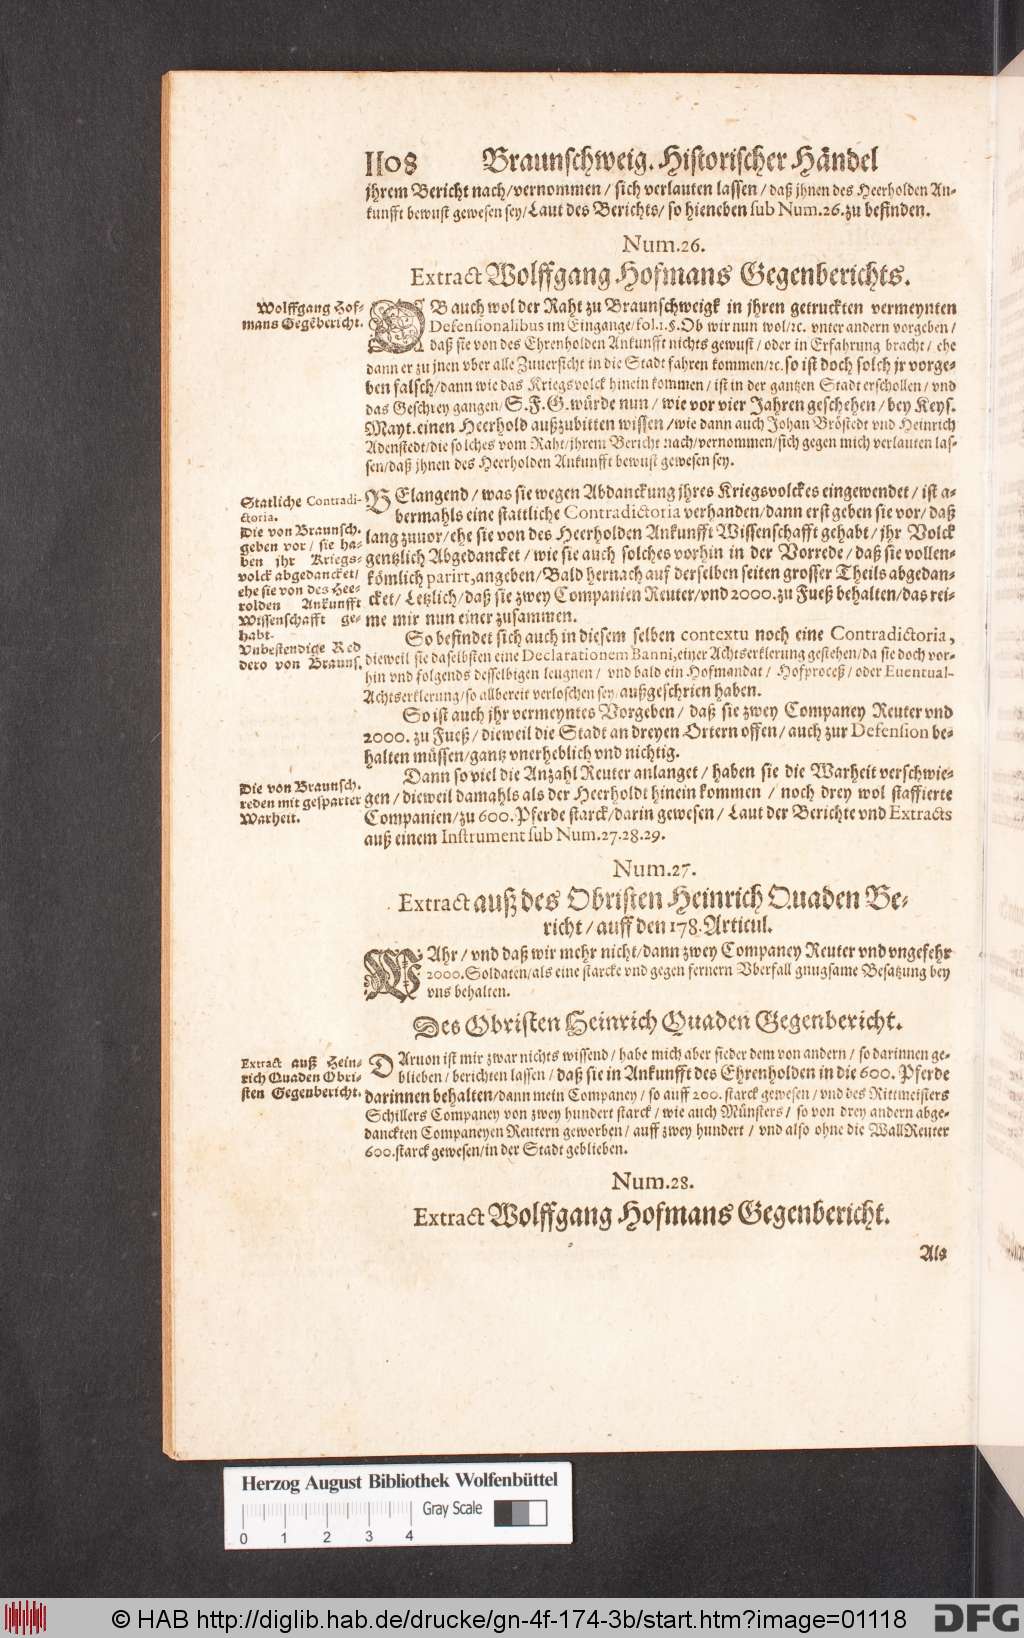 1108 Braunschweig. Historischer Händel
jhrem Bericht nach/vernommen / sich verlauten lassen / daß jhnen des Heerholden An-
kunfft bewust gewesen sey/Laut des Berichts/ so hieneben sub Num.26.zu befinden.
Num.26.
Extract Wolffgang Hofmans Gegenberichts.
Wolffgang Hof-
mans Gegẽbericht.
OB auch wol der Raht zu Braunschweigk in jhren getruckten vermeynten
Defensionalibus im Eingange/fol.1.§.Ob wir nun wol/ꝛc. vnter andern vorgeben /
daß sie von des Ehrenholden Ankunfft nichts gewust / oder in Erfahrung bracht / ehe
dann er zu jnen vber alle Zuuersicht in die Stadt fahren kommen/ꝛc.so ist doch solch jr vorge-
ben falsch/dann wie das Kriegsvolck hinein kommen / ist in der gantzen Stadt erschollen / vnd
das Geschrey gangen/ S.F.G.würde nun / wie vor vier Jahren geschehen / bey Keys.
Mayt.einen Heerhold außzubitten wissen /wie dann auch Johan Bröstedt vnd Heinrich
Adenstedt/die solches vom Raht/jhrem Bericht nach/vernommen/sich gegen mich verlauten las-
sen/daß jhnen des Heerholden Ankunfft bewust gewesen sey.
Statliche Contradi-
ctoria.
Die von Braunsch.
geben vor / sie ha-
ben jhr Kriegs-
volck abgedancket/
ehe sie von des Hee-
rolden Ankunfft
Wissenschafft ge-
habt.
Vnbestendige Red
dero von Brauns.
BElangend / was sie wegen Abdanckung jhres Kriegsvolckes eingewendet / ist a-
bermahls eine stattliche Contradictoria verhanden/dann erst geben sie vor/ daß
lang zuuor/ehe sie von des Heerholden Ankunfft Wissenschafft gehabt/ jhr Volck
gentzlich Abgedancket / wie sie auch solches vorhin in der Vorrede / daß sie vollen-
kömlich parirt,angeben/Bald hernach auf derselben seiten grosser Theils abgedan-
cket/ Letzlich/ daß sie zwey Companien Reuter/vnd 2000.zu Fueß behalten/das rei-
me mir nun einer zusammen.
So befindet sich auch in diesem selben contextu noch eine Contradictoria,
dieweil sie daselbsten eine Declarationem Banni,einer Achtserklerung gestehen/da sie doch vor-
hin vnd folgends desselbigen leugnen / vnd bald ein Hofmandat / Hofproceß / oder Euentual-
Achtserklerung/so allbereit verloschen sey/außgeschrien haben.
So ist auch jhr vermeyntes Vorgeben / daß sie zwey Companey Reuter vnd
2000. zu Fueß / dieweil die Stadt an dreyen Ortern offen / auch zur Defension be-
halten müssen/gantz vnerheblich vnd nichtig.
Die von Braunsch.
reden mit gesparter
Warheit.
Dann so viel die Anzahl Reuter anlanget / haben sie die Warheit verschwie-
gen / dieweil damahls als der Heerholdt hinein kommen / noch drey wol staffierte
Companien/zu 600.Pferde starck/darin gewesen / Laut der Berichte vnd Extracts
auß einem Instrument sub Num.27.28.29.
Num.27.
Extract auß des Obristen Heinrich Quaden Be-
richt / auff den 178.Articul.
WAhr / vnd daß wir mehr nicht/dann zwey Companey Reuter vnd vngefehr
2000.Soldaten/als eine starcke vnd gegen fernern Vberfall gnugsame Besatzung bey
vns behalten.
Des Obristen Heinrich Quaden Gegenbericht.
Extract auß Hein-
rich Quaden Obri-
sten Gegenbericht.
DAruon ist mir zwar nichts wissend / habe mich aber sieder dem von andern / so darinnen ge-
blieben / berichten lassen / daß sie in Ankunfft des Ehrenholden in die 600. Pferde
darinnen behalten/dann mein Companey / so auff 200. starck gewesen / vnd des Rittmeisters
Schillers Companey von zwey hundert starck / wie auch Münsters / so von drey andern abge-
danckten Companeyen Reutern geworben / auff zwey hundert / vnd also ohne die WallReuter
600.starck gewesen/in der Stadt geblieben.
Num.28.
Extract Wolffgang Hofmans Gegenbericht.
Als
Herzog August Bibliothek Wolfenbüttel
Gray Scale
0 1 2 3 4
© HAB http://diglib.hab.de/drucke/gn-4f-174-3b/start.htm?image=01118 DFG